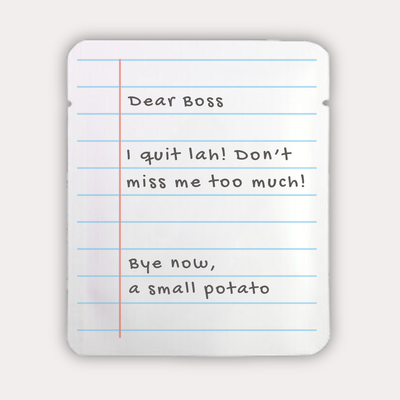 Dear Boss
I quit lah! Don't
miss me too much!
Bye now,
a small potato